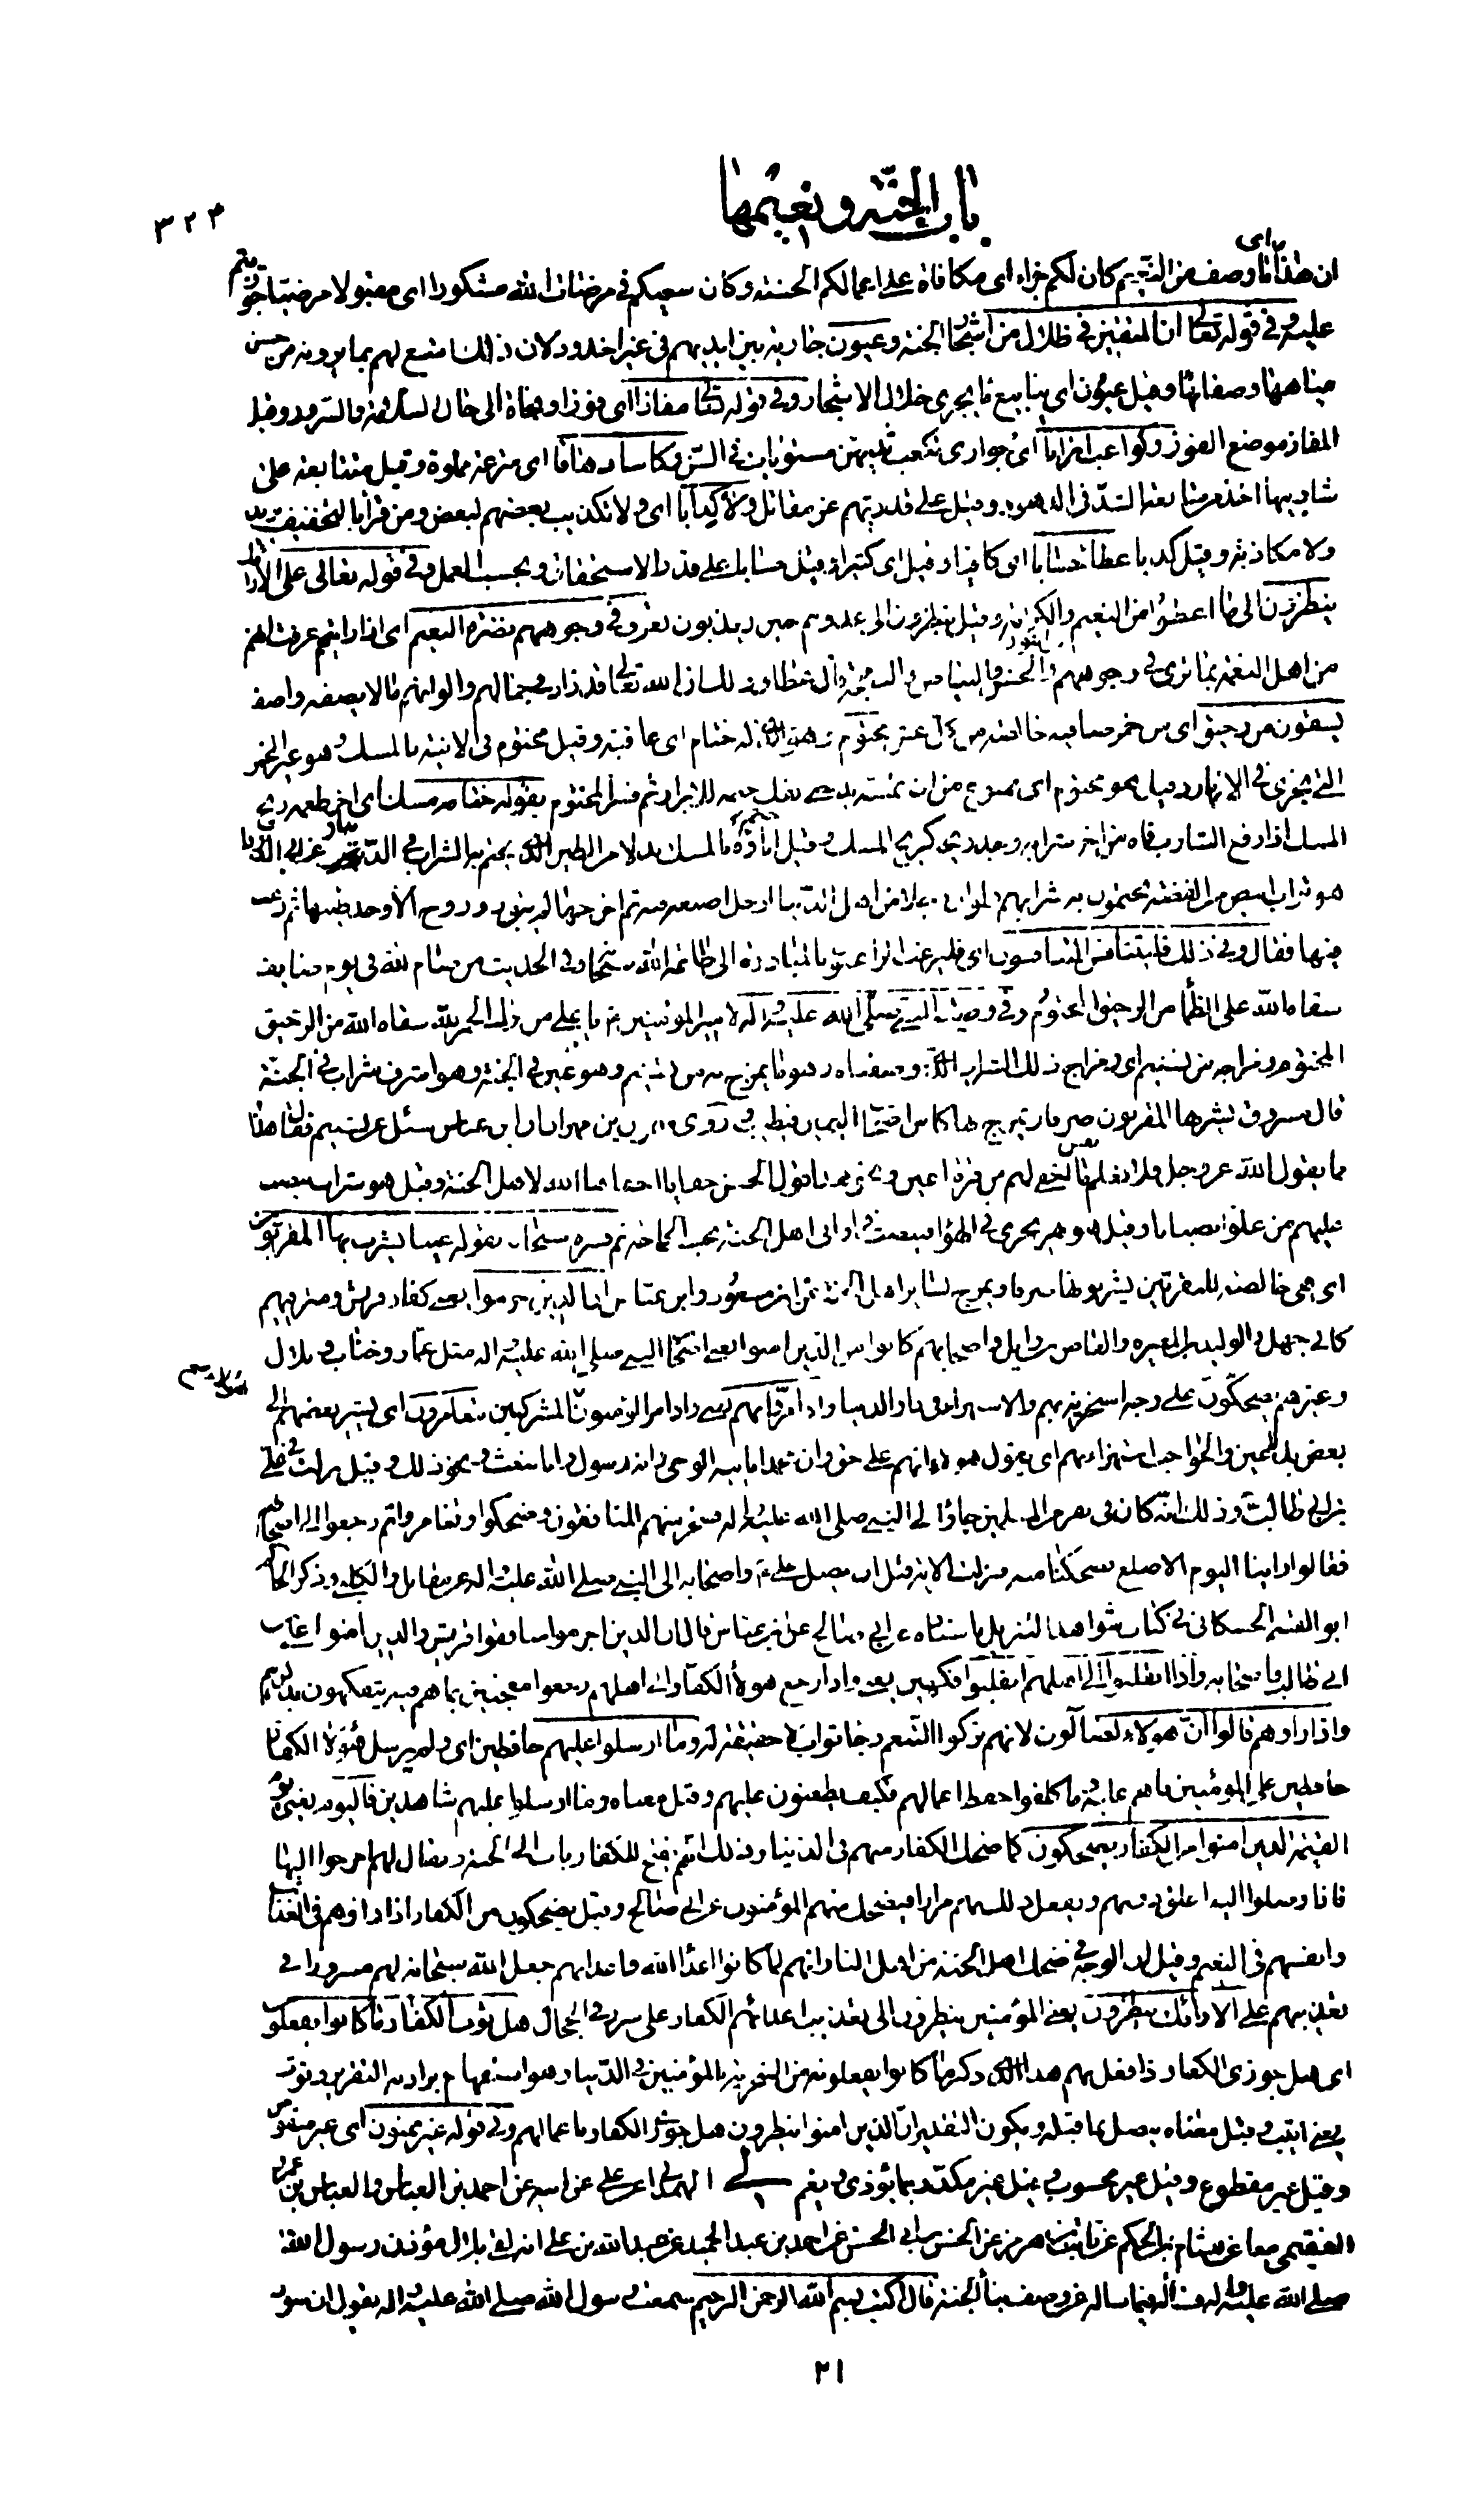 باب الجنة ونعيمها
٣٢٣
ان هذا اى ما وصف من النعيم كان لكم جزاء اى مكافاة على اعمالكم الحسنة وكان سعيكم فى مرضات الله مشكورا اى مقبولا مرضيا جوزيتم
عليه وفى قوله تعالى ان المتقين فى ظلال من اشجار الجنة وعيون جارية بين ايديهم فى غير اخدود لان ذلك امتع لهم بما يرونه من حسن
مياهها وصفائها وقيل عيون اى ينابيع ما يجرى خلال الاشجار وفى قوله تعالى مفازا اى فوزا ونجاة الى حال السلامة والسرور وقيل
المفاز موضع الفوز وكواعب اترابا اى جوارى تكعب ثديهن مستويات فى السن وكاسا دهاقا اى مترعة مملوة وقيل متتابعة على
شاربيها اخذ من متابعة الشد فى الدهق وقيل على قدر ريهم عن مقاتل ولا كذابا اى ولا تكذيب بعضهم لبعض ومن قرأ بالتخفيف يريد
ولا مكاذبة وقيل كذبا عطاء حسابا اى كافيا وقيل اى كثيرا وقيل حسابا على قدر الاستحقاق وبحسب العمل وفى قوله تعالى على الارائك
ينظرون الى ما اعطوا من النعيم والكرامة وقيل ينظرون الى عدوهم حين يعذبون تعرف فى وجوههم نضرة النعيم اى اذا رايتهم عرفت انهم
من اهل النعمة بما ترى فى وجوههم من النور والحسن والبياض والبهجة قال عطا وذلك ان الله تعالى قد زاد فى جمالهم والوانهم ما لا يصفه واصف
يسقون من رحيق اى من خمر صافية خالصة من كل غش مختوم وهو الذى له ختام اى عاقبة وقيل مختوم فى الانية بالمسك وهو غير الخمر
التى تجرى فى الانهار وقيل هو مختوم اى ممنوع من ان تمسه يد حتى يفك ختمه للابرار ثم فسر المختوم بقوله ختامه مسك اى اخر طعمه ريح
المسك اذا رفع الشارب فاه من اخر شرابه وجد ريحه كريح المسك وقيل ختم اناؤه بالمسك بدلا من الطين الذى يختم به الشراب فى الدنيا وعن ابى الدرداء
هو شراب ابيض مثل الفضة يختمون به شرابهم ولو ان رجلا من اهل الدنيا ادخل اصبعه فيه ثم اخرجها لم يبق ذو روح الا وجد طيبها ثم رغب
فيها فقال وفى ذلك فليتنافس المتنافسون اى فليرغب الراغبون بالمبادرة الى طاعة الله سبحانه وفى الحديث من صام لله فى يوم صايف
سقاه الله على الظمأ من الرحيق المختوم وفى وصية النبى صلى الله عليه واله لامير المؤمنين يا على من ترك الخمر لله سقاه الله من الرحيق
المختوم ومزاجه من تسنيم اى ومزاج ذلك الشراب الذى وصفناه وهو ما يمزج به من تسنيم وهو عين فى الجنة وهو اشرف شراب فى الجنة
قال مسروق يشربها المقربون صرفا ويمزج بها كاس اصحاب اليمين فيطيب وروى ميمون بن مهران ان ابن عباس سئل عن تسنيم فقال هذا
مما يقول الله عز وجل فلا تعلم نفس ما اخفى لهم من قرة اعين ونحو هذا قول الحسن خفايا اخفاها الله لاهل الجنة وقيل هو شراب ينصب
عليهم من علو انصبابا وقيل هو نهر يجرى فى الهوا فينصب فى اوانى اهل الجنة بحسب الحاجة ثم فسره سبحانه بقوله عينا يشرب بها المقربون
اى هى خالصة للمقربين يشربونها صرفا ويمزج لساير اهل الجنة عن ابن مسعود وابن عباس ان الذين اجرموا يعنى كفار قريش ومترفيهم
كابى جهل والوليد بن المغيرة والعاص بن وايل واصحابهم كانوا من الذين امنوا يعنى اصحاب النبى صلى الله عليه واله مثل عمار وخباب وبلال
وغيرهم يضحكون على وجه السخرية بهم والاستهزاء فى دار الدنيا واذا مروا بهم يعنى واذا مر المؤمنون بالمشركين يتغامزون اى يشير بعضهم الى
بعض بالاعين والحواجب استهزاء بهم اى يقول هؤلاء انهم على حق وان محمدا ياتيه الوحى وانه رسول وانا نبعث ونحو ذلك وقيل نزلت فى على
بن ابى طالب وذلك انه كان فى نفر من المسلمين جاؤا الى النبى صلى الله عليه واله فسخر منهم المنافقون وضحكوا وتغامزوا ثم رجعوا الى اصحابهم
فقالوا راينا اليوم الاصلع فضحكنا منه فنزلت الاية قبل ان يصل على ع واصحابه الى النبى صلى الله عليه واله عن مقاتل والكلبى وذكر الحاكم
ابو القسم الحسكانى فى كتاب شواهد التنزيل باسناده عن ابى صالح عن ابن عباس قال ان الذين اجرموا منافقوا قريش والذين امنوا على بن
ابى طالب واصحابه واذا انقلبوا الى اهلهم انقلبوا فكهين يعنى واذا رجع هؤلاء الكفار الى اهلهم رجعوا معجبين بما هم فيه يتفكهون بذكرهم
واذا راوهم قالوا ان هؤلاء لضالون لانهم تركوا التنعم رجاء ثواب لا حقيقة له وما ارسلوا عليهم حافظين اى ولم يرسل هؤلاء الكفار
حافظين على المؤمنين ما هم عليه وما كلفوا حفظ اعمالهم فكيف يطعنون عليهم وقيل معناه وما ارسلوا عليهم شاهدين فاليوم يعنى يوم
القيمة الذين امنوا من الكفار يضحكون كما ضحك الكفار منهم فى الدنيا وذلك انه يفتح للكفار باب الى الجنة ويقال لهم اخرجوا اليها
فاذا وصلوا اليه اغلق دونهم ويفعل ذلك بهم مرارا فيضحك منهم المؤمنون عن ابى صالح وقيل يضحكون من الكفار اذا راوهم فى العذاب
وانفسهم فى النعيم وقيل ان الوجه فى ضحك اهل الجنة من اهل النار انهم لما كانوا اعداء الله واعداءهم جعل الله سبحانه لهم سرورا فى
تعذيبهم على الارائك ينظرون يعنى المؤمنين ينظرون الى تعذيب اعدائهم الكفار على سرر فى الحجال هل ثوب الكفار ما كانوا يفعلون
اى هل جوزى الكفار اذا فعل بهم هذا الذى ذكر ما كانوا يفعلونه من السخرية بالمؤمنين فى الدنيا وهو استفهام يراد به التقرير وثوب
بمعنى اثيب وقيل معناه يتصل بما قبله ويكون التقدير ان الذين امنوا ينظرون هل جوزى الكفار باعمالهم وفى قوله غير ممنون اى غير منقوص
وقيل غير مقطوع وقيل غير محسوب وقيل غير مكدر بما يؤذى ويغم لى الهمدانى عن على عن ابيه عن احمد بن العباس والعباس بن عمرو
الفقيمى معا عن هشام بن الحكم عن ثابت بن هرمز عن الحسن بن ابى الحسن عن احمد بن عبد الحميد عن عبد الله بن على انه لقى بلال مؤذن رسول الله
صلى الله عليه واله فيما ساله عن وصف بناء الجنة قال اكتب بسم الله الرحمن الرحيم سمعت رسول الله صلى الله عليه واله يقول ان سور
٢١